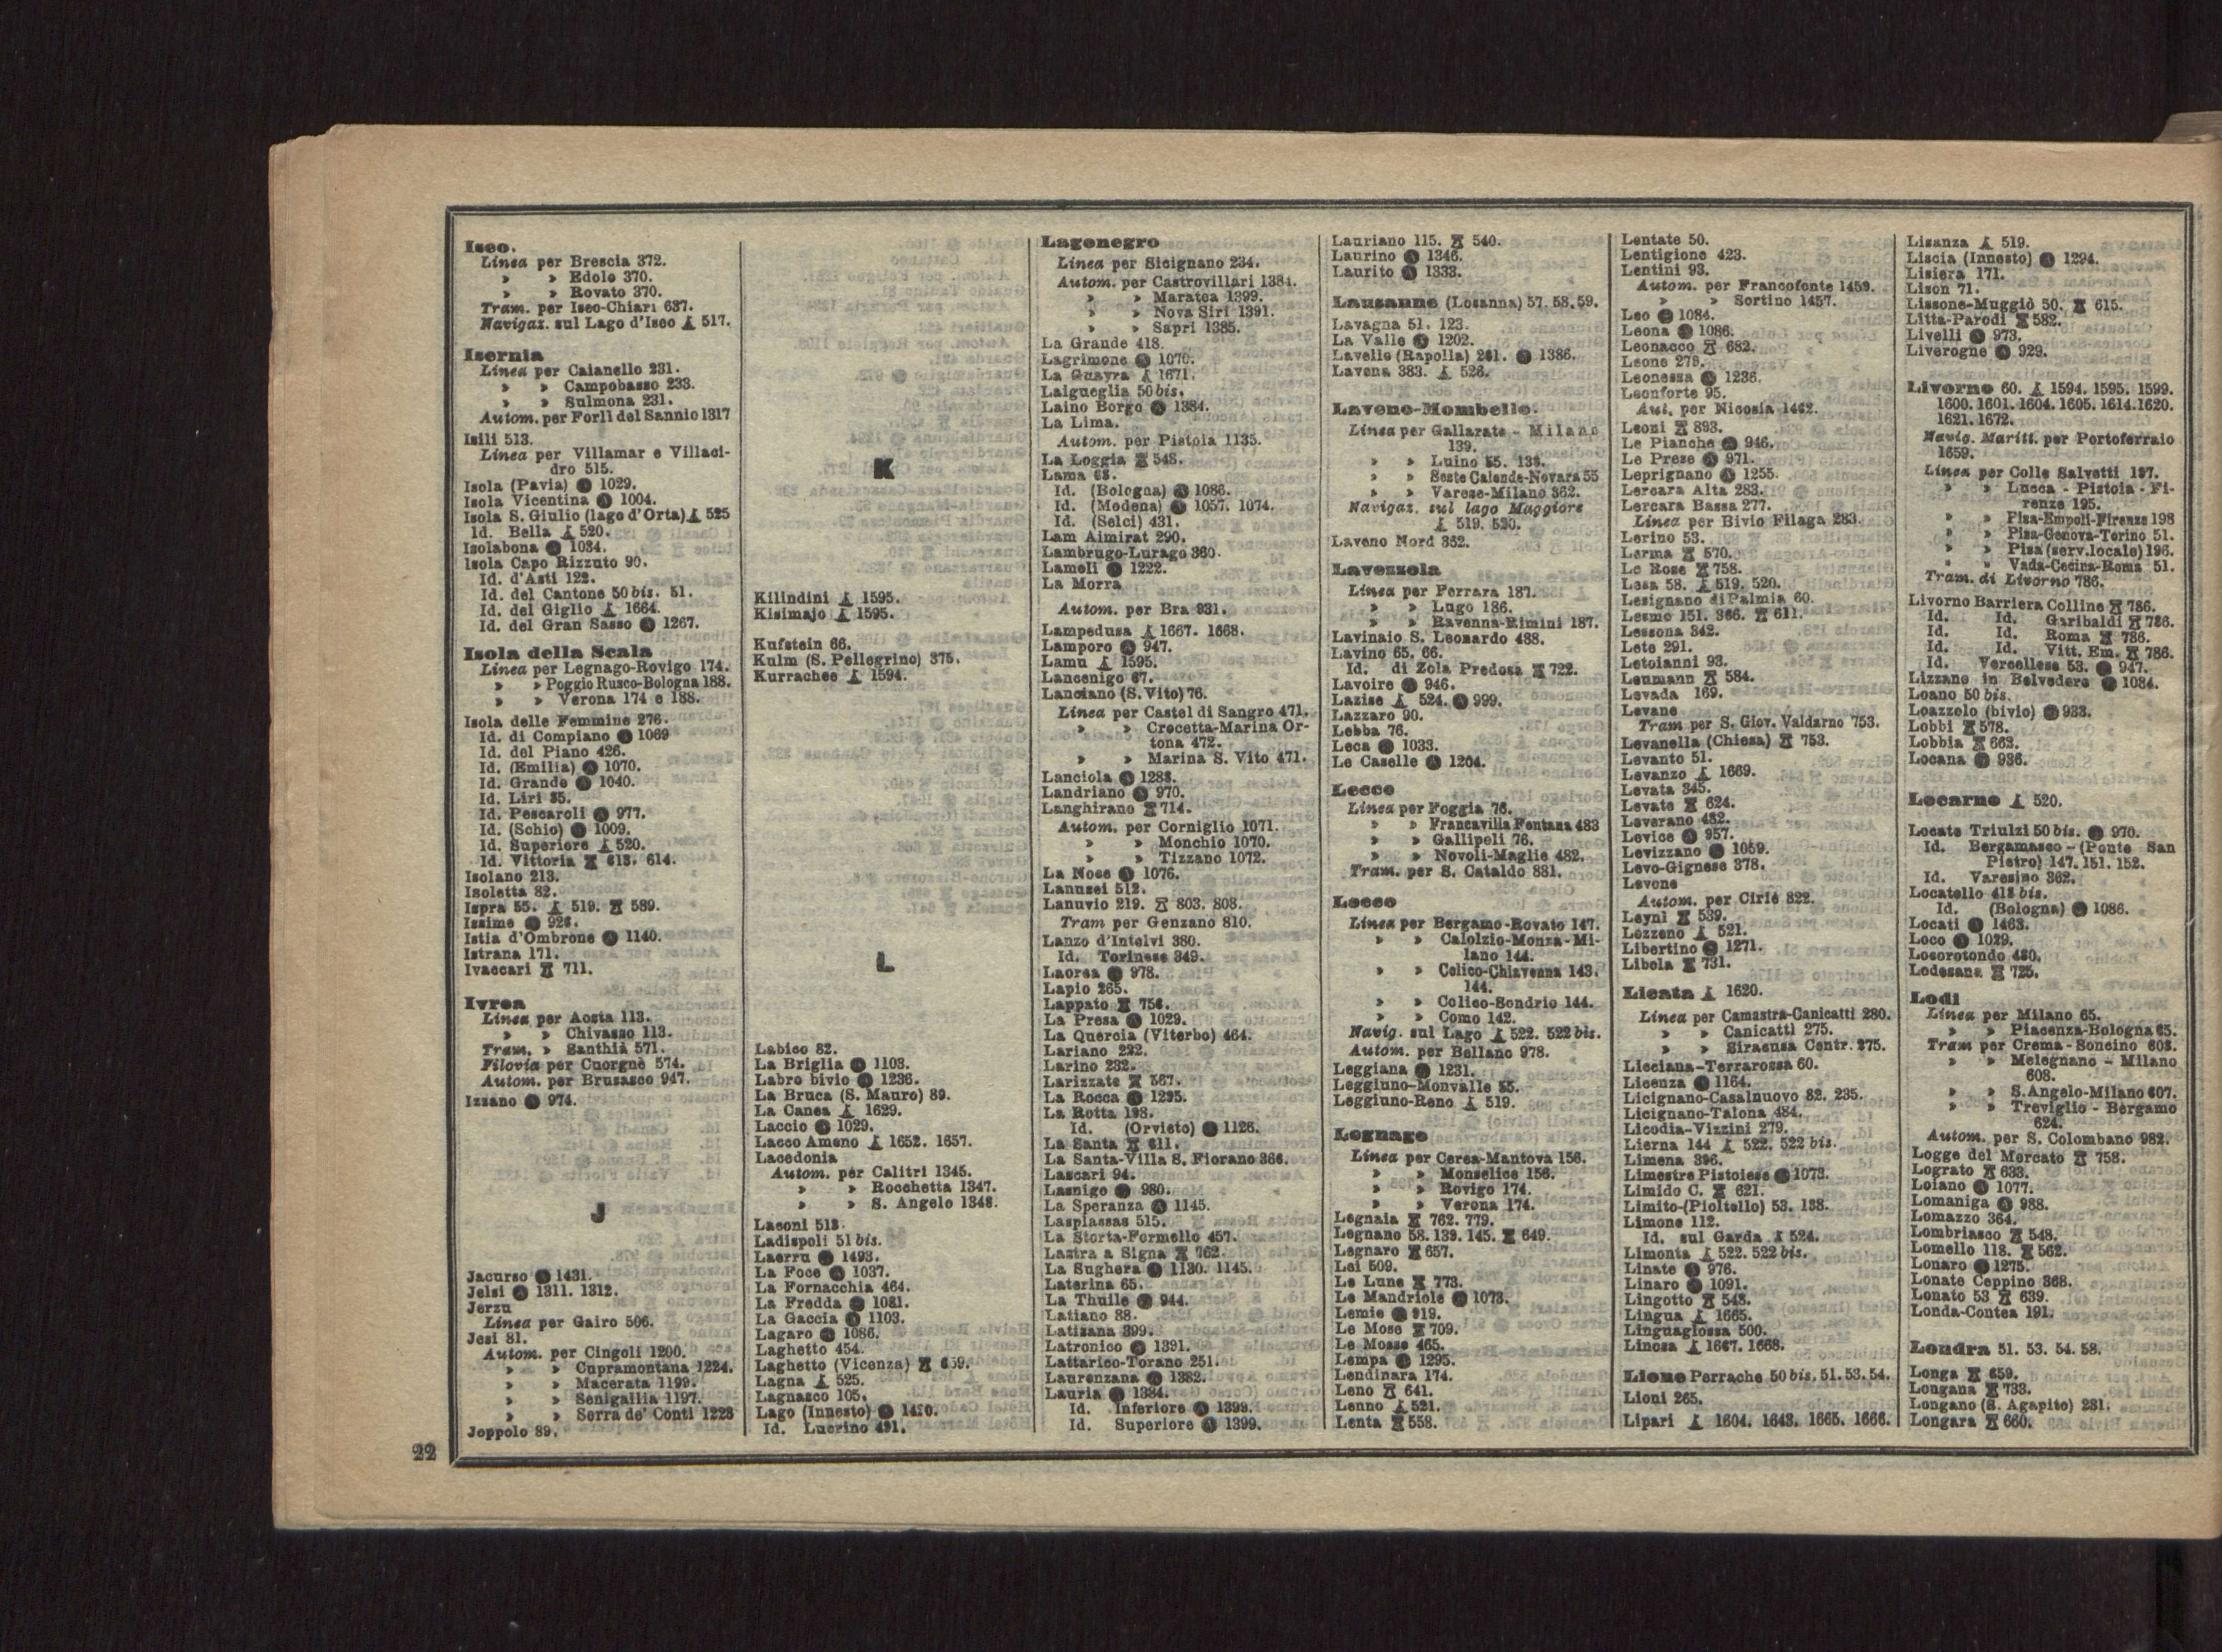 Iseo.
Linea per Brescia 372.
» » Edolo 370.
» » Rovato 370.
Tram. per Iseo-Chiari 637.
Navigaz. sul Lago d'Iseo 517.
Isernia
Linea per Caianello 231.
» » Campobasso 233.
» » Sulmona 231.
Autom. per Forlì del Sannio 1317
Isili 513.
Linea per Villamar e Villaci-
dro 515.
Isola (Pavia) 1029.
Isola Vicentina 1004.
Isola S. Giulio (lago d'Orta) 525
Id. Bella 520.
Isolabona 1034.
Isola Capo Rizzuto 90.
Id. d'Asti 122.
Id. del Cantone 50 bis. 51.
Id. del Giglio 1664.
Id. del Gran Sasso 1267.
Isola della Scala
Linea per Legnago-Rovigo 174.
» » Poggio Rusco-Bologna 188.
» » Verona 174 e 188.
Isola delle Femmine 276.
Id. di Compiano 1069
Id. del Piano 426.
Id. (Emilia) 1070.
Id. Grande 1040.
Id. Liri 85.
Id. Pescaroli 977.
Id. (Schio) 1009.
Id. Superiore 520.
Id. Vittoria 613. 614.
Isolano 213.
Isoletta 82.
Ispra 55. 519. 589.
Issime
Istia d'Ombrone 1140.
Istrana 171.
Ivaccari 711.
Ivrea
Linea per Aosta 113.
» » Chivasso 113.
Tram. » Santhià 571.
Filovia per Cuorgnè 574.
Autom. per Brusasco 947.
Izzano 974.
J
Jacurso 1431.
Jelsi 1311. 1312.
Jerzu
Linea per Gairo 506.
Jesi 81.
Autom. per Cingoli 1200.
» » Cupramontana 1224.
» » Macerata 1199.
» » Senigallia 1197.
» » Serra de' Conti 1223
Joppolo 89.
K
Kilindini 1595.
Kisimajo 1595.
Kufstein 66.
Kulm (S. Pellegrino) 375.
Kurrachee 1594.
L
Labico 82.
La Briglia 1103.
Labro bivio 1236.
La Bruca (S. Mauro) 89.
La Canea 1629.
Laccio 1029.
Lacco Ameno 1652. 1657.
Lacedonia
Autom. per Calitri 1345.
» » Rocchetta 1347.
» » S. Angelo 1348.
Laconi 513.
Ladispoli 51 bis.
Laerru 1493.
La Foce 1037.
La Fornacchia 464.
La Fredda 1081.
La Gaccia 1103.
Lagaro 1086.
Laghetto 454.
Laghetto (Vicenza) 659.
Lagna 525.
Lagnasco 105.
Lago (Innesto)
Id. Lucrino 491.
Lagonegro
Linea per Sicignano 234.
Autom. per Castrovillari 1384.
» » Maratea 1399.
» » Nova Siri 1391.
» » Sapri 1385.
La Grande 418.
Lagrimone 1070.
La Guayra 1671.
Laigueglia 50 bis.
Laino Borgo 1384.
La Lima.
Autom. per Pistoia 1135.
La Loggia 548.
Lama 68.
Id. (Bologna) 1086.
Id. (Modena) 1057. 1074.
Id. (Selci) 431.
Lam Aimirat 290.
Lambrugo-Lurago 360.
Lameli 1222.
La Morra
Autom. per Bra 931.
Lampedusa 1667. 1668.
Lamporo 947.
Lamu 1595.
Lancenigo 67.
Lanciano (S. Vito) 76.
Linea per Castel di Sangro 471.
» » Crocetta-Marina Or-
tona 472.
» » Marina S. Vito 471.
Lanciola 1288.
Landriano 970.
Langhirano 714.
Autom. per Corniglio 1071.
» » Monchio 1070.
» » Tizzano 1072.
La Noce 1076.
Lanusei 512.
Lanuvio 219. 803. 808.
Tram per Genzano 810.
Lanzo d'Intelvi 380.
Id. Torinese 349.
Laorca 978.
Lapio 265.
Lappato 758.
La Presa 1029.
La Quercia (Viterbo) 464.
Lariano 222.
Larino 232.
Larizzate 567.
La Rocca 1295.
La Rotta 198.
Id. (Orvieto) 1126.
La Santa 611.
La Santa-Villa S. Fiorano 366.
Lascari 94.
Lasnigo 980.
La Speranza 1145.
Lasplassas 515.
La Storta-Formello 457.
Lastra a Signa 762.
La Sughera 1130. 1145.
Laterina 65.
La Thuile 944.
Latiano 88.
Latisana 399.
Latronico 1391.
Lattarico-Torano 251.
Laurenzana 1382.
Lauria 1384.
Id. Inferiore 1399.
Id. Superiore 1399.
Lauriano 115. 540.
Laurino 1346.
Laurito 1333.
Lausanne (Losanna) 57. 58. 59.
Lavagna 51. 123.
La Valle 1202.
Lavello (Rapolla) 261. 1386.
Lavena 383. 526.
Laveno-Mombello.
Linea per Gallarate - Milano
139.
» » Luino 55. 138.
» » Sesto Calende-Novara 55
» » Varese-Milano 362.
Navigaz. sul lago Maggiore
519. 520.
Laveno Nord 362.
Lavezzola
Linea per Ferrara 187.
» » Lugo 186.
» » Ravenna-Rimini 187.
Lavinaio S. Leonardo 488.
Lavino 65. 66.
Id. di Zola Predosa 722.
Lavoire 946.
Lazise 524. 999.
Lazzaro 90.
Lebba 76.
Leca 1033.
Le Caselle 1204.
Lecce
Linea per Foggia 76.
» » Francavilla Fontana 483
» » Gallipoli 76.
» » Novoli-Maglie 482.
Tram. per S. Cataldo 881.
Lecco
Linea per Bergamo-Rovato 147.
» » Calolzio-Monza-Mi-
lano 144.
» » Colico-Chiavenna 143.
144.
» » Colico-Sondrio 144.
» » Como 142.
Navig. sul Lago 522. 522 bis.
Autom. per Bellano 978.
Leggiana 1231.
Leggiuno-Monvalle 55.
Leggiuno-Reno 519.
Legnago
Linea per Cerea-Mantova 156.
» » Monselice 156.
» » Rovigo 174.
» » Verona 174.
Legnaia 762. 779.
Legnano 58. 139. 145. 649.
Legnaro 657.
Lei 509.
Le Lune 773.
Le Mandriole 1073.
Lemie 919.
Le Mose 709.
Le Mosse 465.
Lempa 1295.
Lendinara 174.
Leno 641.
Lenno 521.
Lenta 558.
Lentate 50.
Lentigione 423.
Lentini 93.
Autom. per Francofonte 1459.
» » Sortino 1457.
Leo 1084.
Leona 1086.
Leonacco 682.
Leone 279.
Leonessa 1236.
Leonforte 95.
Aut. per Nicosia 1462.
Leoni 893.
Le Pianche 946.
Le Prese 971.
Leprignano 1255.
Lercara Alta 283.
Lercara Bassa 277.
Linea per Bivio Filaga 283.
Lerino 53.
Lerma 570.
Le Rose 758.
Lesa 58. 519. 520.
Lesignano di Palmia 60.
Lesmo 151. 366. 611.
Lessona 342.
Lete 291.
Letoianni 93.
Leumann 584.
Levada 169.
Levane
Tram per S. Giov. Valdarno 753.
Levanella (Chiesa) 753.
Levanto 51.
Levanzo 1669.
Levata 345.
Levate 624.
Leverano 482.
Levice 957.
Levizzano 1059.
Levo-Gignese 378.
Levone
Autom. per Ciriè 822.
Leynì 539.
Lezzeno 521.
Libertino 1271.
Libola 731.
Licata 1620.
Linea per Camastra-Canicattì 280.
» » Canicattì 275.
» » Siracusa Centr. 275.
Licciana-Terrarossa 60.
Licenza 1164.
Licignano-Casalnuovo 82. 235.
Licignano-Talona 484.
Licodia-Vizzini 279.
Lierna 144 522. 522 bis.
Limena 396.
Limestre Pistoiese 1073.
Limido C. 621.
Limito-(Pioltello) 53. 138.
Limone 112.
Id. sul Garda 524.
Limonta 522. 522 bis.
Linate 976.
Linaro 1091.
Lingotto 548.
Lingua 1665.
Linguaglossa 500.
Linosa 1667. 1668.
Lione Perrache 50 bis. 51. 53. 54.
Lioni 265.
Lipari 1604. 1643. 1665. 1666.
Lisanza 519.
Liscia (Innesto) 1294.
Lisiera 171.
Lison 71.
Lissone-Muggiò 50. 615.
Litta-Parodi 582.
Livelli 973.
Liverogne 929.
Livorno 60. 1594. 1595. 1599.
1600. 1601. 1604. 1605. 1614. 1620.
1621. 1672.
Navig. Maritt. per Portoferraio
1659.
Linea per Colle Salvetti 197.
» » Lucca - Pistoia - Fi-
renze 195.
» » Pisa-Empoli-Firenze 198
» » Pisa-Genova-Torino 51.
» » Pisa (serv. locale) 196.
» » Vada-Cecina-Roma 51.
Tram. di Livorno 786.
Livorno Barriera Colline 786.
Id. Id. Garibaldi 786.
Id. Id. Roma 786.
Id. Id. Vitt. Em. 786.
Id. Vercellese 53. 947.
Lizzano in Belvedere 1084.
Loano 50 bis.
Loazzolo (bivio) 933.
Lobbi 578.
Lobbia 663.
Locana 936.
Locarno 520.
Locate Triulzi 50 bis. 970.
Id. Bergamasco - (Ponte San
Pietro) 147. 151. 152.
Id. Varesino 362.
Locatello 418 bis.
Id. (Bologna) 1086.
Locati 1463.
Loco 1029.
Locorotondo 480.
Lodesana 725.
Lodi
Linea per Milano 65.
» » Piacenza-Bologna 65.
Tram per Crema-Soncino 608.
» » Melegnano - Milano
608.
» » S. Angelo-Milano 607.
» » Treviglio - Bergamo
624.
Autom. per S. Colombano 982.
Logge del Mercato 758.
Lograto 633.
Loiano 1077.
Lomaniga 988.
Lomazzo 364.
Lombriasco 548.
Lomello 118. 562.
Lonaro 1275.
Lonate Ceppino 368.
Lonato 53 639.
Londa-Contea 191.
Londra 51. 53. 54. 58.
Longa 659.
Longana 733.
Longano (S. Agapito) 231.
Longara 660.
22